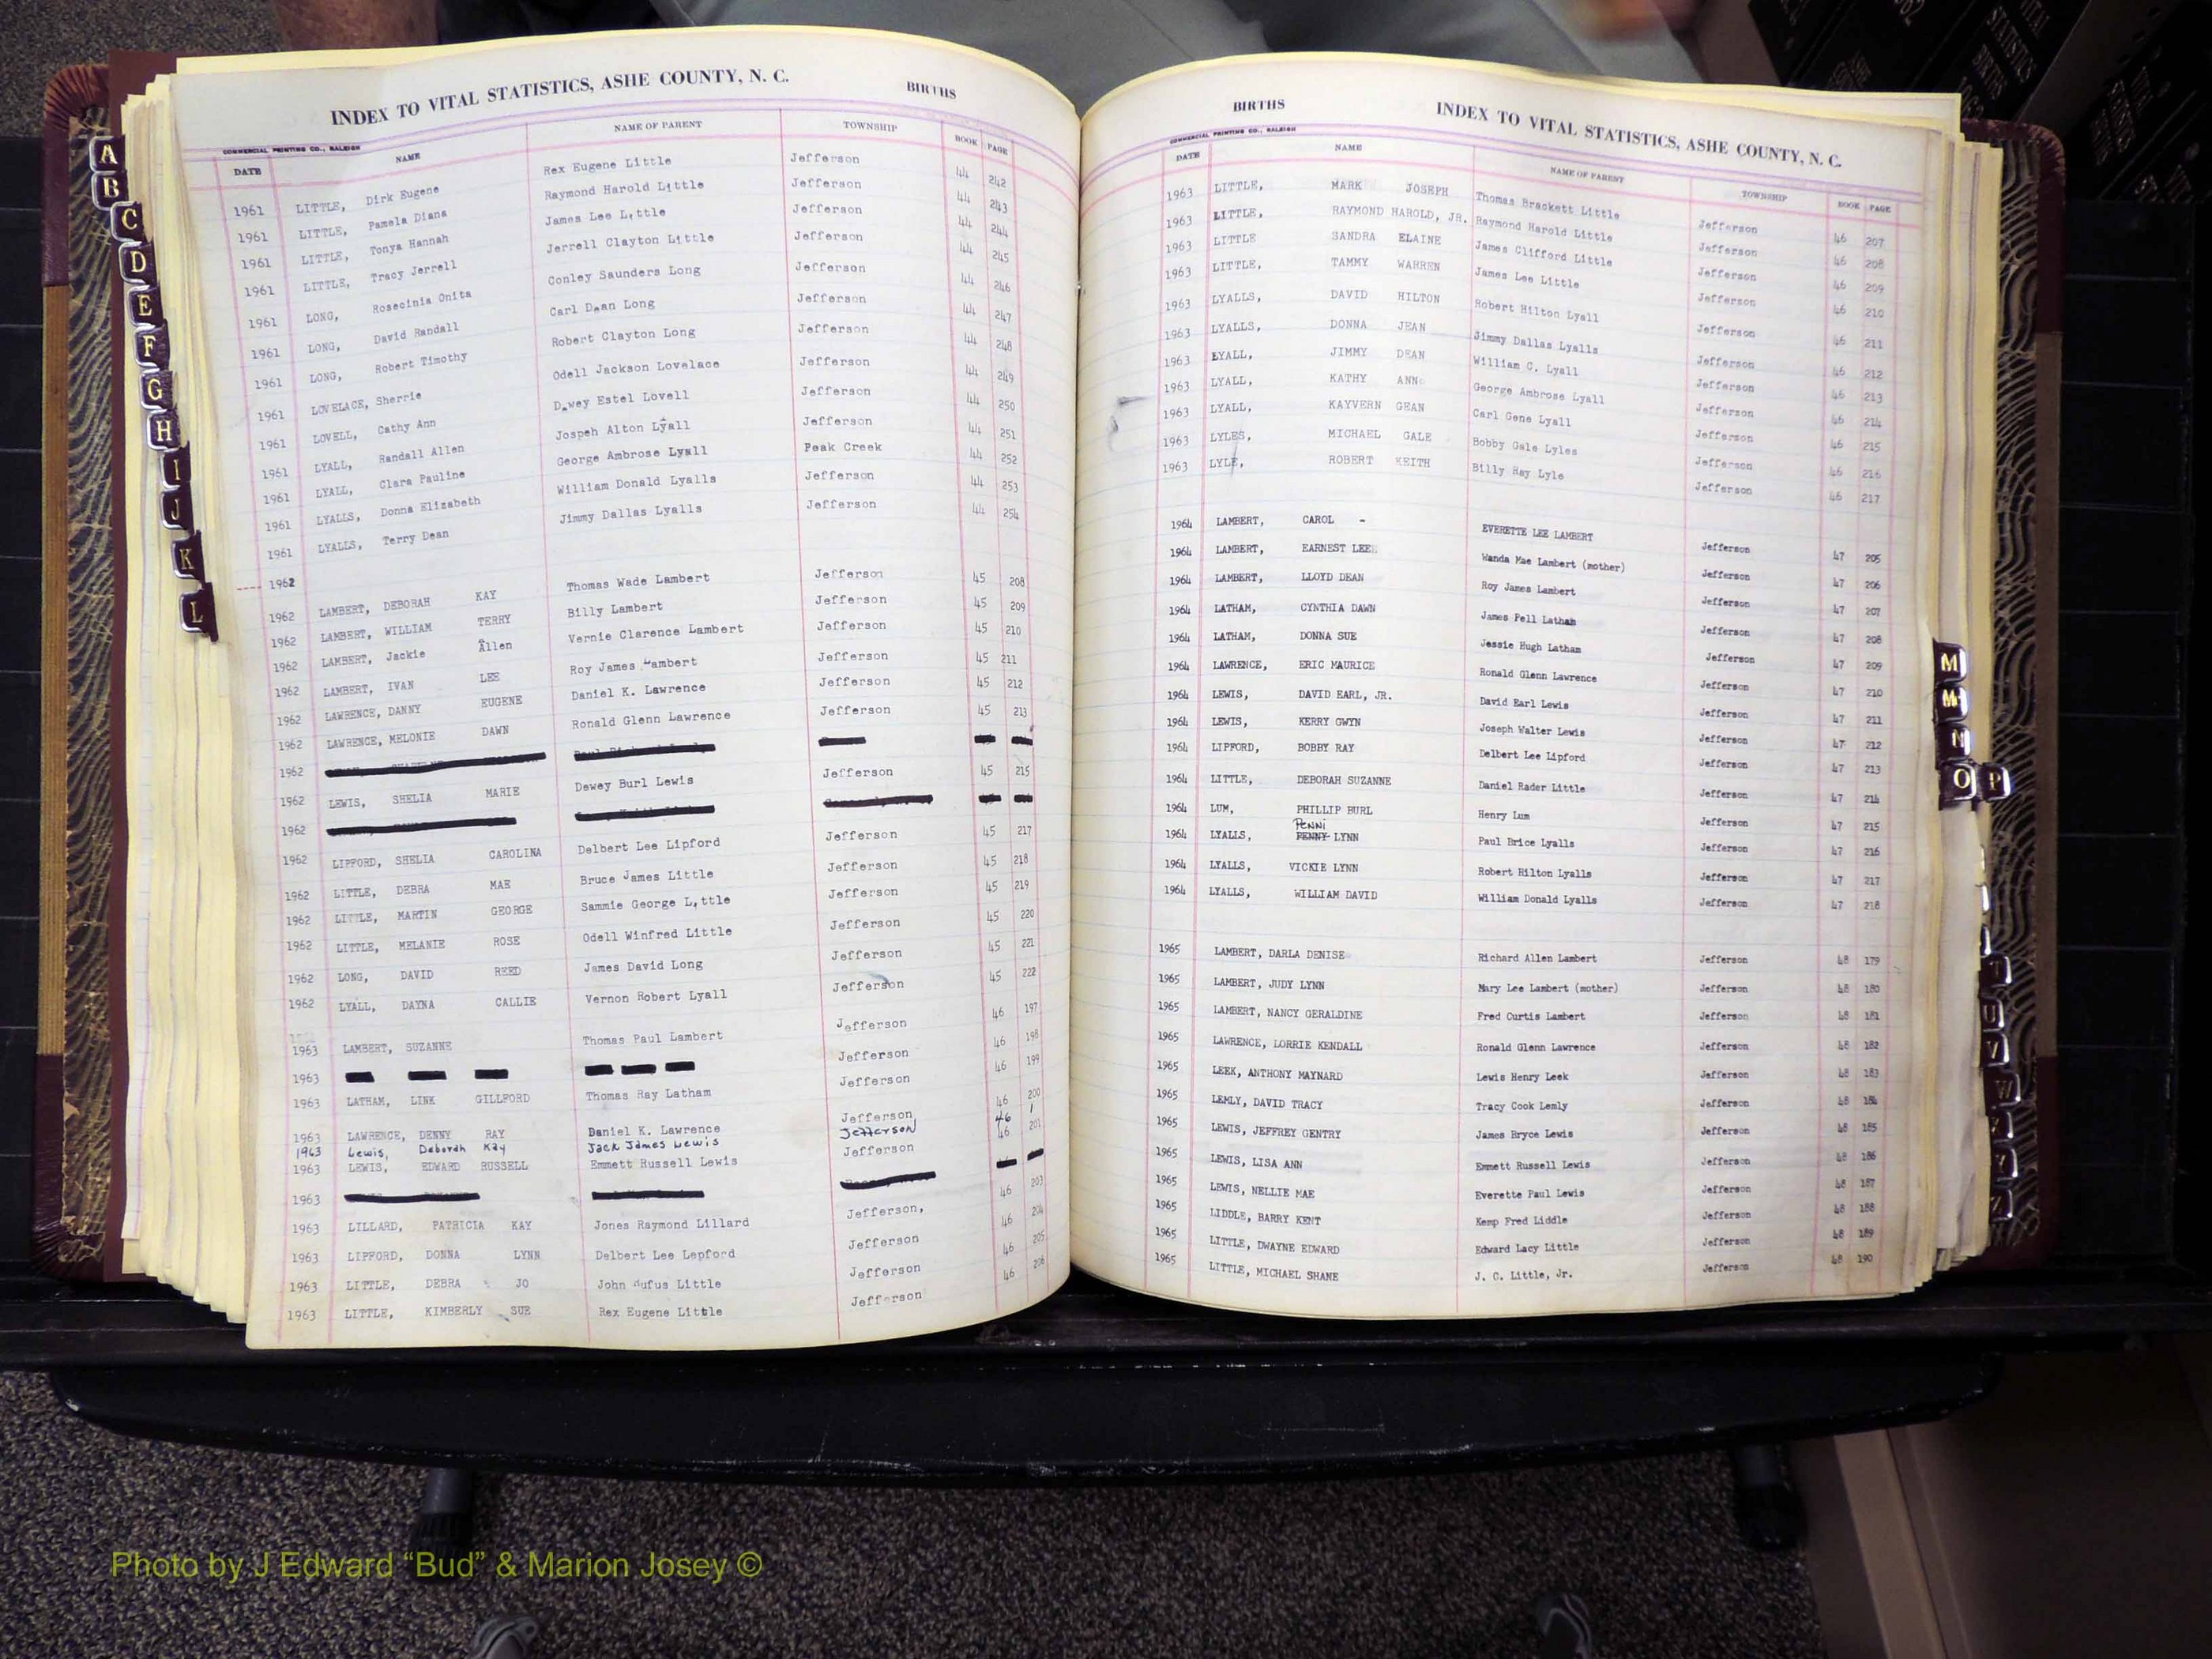 INDEX TO VITAL STATISTICS, ASHE COUNTY, N. C. BIRTHS
COMMERCIAL PRINTING CO., RALEIGH
DATE NAME NAME OF PARENT TOWNSHIP BOOK PAGE
1961 LITTLE, Dirk Eugene Rex Eugene Little Jefferson 44 242
1961 LITTLE, Pamela Diana Raymond Harold Little Jefferson 44 243
1961 LITTLE, Tonya Hannah James Lee Little Jefferson 44 244
1961 LITTLE, Tracy Jerrell Jerrell Clayton Little Jefferson 44 245
1961 LONG, Rosecinia Onita Conley Saunders Long Jefferson 44 246
1961 LONG, David Randall Carl Dean Long Jefferson 44 247
1961 LONG, Robert Timothy Robert Clayton Long Jefferson 44 248
1961 LOVELACE, Sherrie Odell Jackson Lovelace Jefferson 44 249
1961 LOVELL, Cathy Ann Dewey Estel Lovell Jefferson 44 250
1961 LYALL, Randall Allen Jospeh Alton Lyall Jefferson 44 251
1961 LYALL, Clara Pauline George Ambrose Lyall Peak Creek 44 252
1961 LYALLS, Donna Elizabeth William Donald Lyalls Jefferson 44 253
1961 LYALLS, Terry Dean Jimmy Dallas Lyalls Jefferson 44 254
1962
1962 LAMBERT, DEBORAH KAY Thomas Wade Lambert Jefferson 45 208
1962 LAMBERT, WILLIAM TERRY Billy Lambert Jefferson 45 209
1962 LAMBERT, Jackie Allen Vernie Clarence Lambert Jefferson 45 210
1962 LAMBERT, IVAN LEE Roy James Lambert Jefferson 45 211
1962 LAWRENCE, DANNY EUGENE Daniel K. Lawrence Jefferson 45 212
1962 LAWRENCE, MELONIE DAWN Ronald Glenn Lawrence Jefferson 45 213
1962
1962 LEWIS, SHELIA MARIE Dewey Burl Lewis Jefferson 45 215
1962
1962 LIPFORD, SHELIA CAROLINA Delbert Lee Lipford Jefferson 45 217
1962 LITTLE, DEBRA MAE Bruce James Little Jefferson 45 218
1962 LITTLE, MARTIN GEORGE Sammie George Little Jefferson 45 219
1962 LITTLE, MELANIE ROSE Odell Winfred Little Jefferson 45 220
1962 LONG, DAVID REED James David Long Jefferson 45 221
1962 LYALL, DAYNA CALLIE Vernon Robert Lyall Jefferson 45 222
1963 LAMBERT, SUZANNE Thomas Paul Lambert Jefferson 46 197
1963 Jefferson 46 198
1963 LATHAM, LINK GILLFORD Thomas Ray Latham Jefferson 46 199
1963 LAWRENCE, DENNY RAY Daniel K. Lawrence Jefferson 46 200
1963 Lewis, Deborah Kay Jack James Lewis Jefferson 46 1
1963 LEWIS, EDWARD RUSSELL Emmett Russell Lewis Jefferson 46 201
1963
1963 LILLARD, PATRICIA KAY Jones Raymond Lillard Jefferson, 46 203
1963 LIPFORD, DONNA LYNN Delbert Lee Lepford Jefferson 46 204
1963 LITTLE, DEBRA JO John Rufus Little Jefferson 46 205
1963 LITTLE, KIMBERLY SUE Rex Eugene Little Jefferson 46 206
BIRTHS INDEX TO VITAL STATISTICS, ASHE COUNTY, N. C.
COMMERCIAL PRINTING CO., RALEIGH
DATE NAME NAME OF PARENT TOWNSHIP BOOK PAGE
1963 LITTLE, MARK JOSEPH Thomas Brackett Little Jefferson 46 207
1963 LITTLE, RAYMOND HAROLD, JR. Raymond Harold Little Jefferson 46 208
1963 LITTLE SANDRA ELAINE James Clifford Little Jefferson 46 209
1963 LITTLE, TAMMY WARREN James Lee Little Jefferson 46 210
1963 LYALLS, DAVID HILTON Robert Hilton Lyall Jefferson 46 211
1963 LYALLS, DONNA JEAN Jimmy Dallas Lyalls Jefferson 46 212
1963 LYALL, JIMMY DEAN William C. Lyall Jefferson 46 213
1963 LYALL, KATHY ANN George Ambrose Lyall Jefferson 46 214
1963 LYALL, KAYVERN GEAN Carl Gene Lyall Jefferson 46 215
1963 LYLES, MICHAEL GALE Bobby Gale Lyles Jefferson 46 216
1963 LYLE, ROBERT KEITH Billy Ray Lyle Jefferson 46 217
1964 LAMBERT, CAROL - EVERETTE LEE LAMBERT Jefferson 47 205
1964 LAMBERT, EARNEST LEE Wanda Mae Lambert (mother) Jefferson 47 206
1964 LAMBERT, LLOYD DEAN Roy James Lambert Jefferson 47 207
1964 LATHAM, CYNTHIA DAWN James Pell Latham Jefferson 47 208
1964 LATHAM, DONNA SUE Jessie Hugh Latham Jefferson 47 209
1964 LAWRENCE, ERIC MAURICE Ronald Glenn Lawrence Jefferson 47 210
1964 LEWIS, DAVID EARL, JR. David Earl Lewis Jefferson 47 211
1964 LEWIS, KERRY GWYN Joseph Walter Lewis Jefferson 47 212
1964 LIPFORD, BOBBY RAY Delbert Lee Lipford Jefferson 47 213
1964 LITTLE, DEBORAH SUZANNE Daniel Rader Little Jefferson 47 214
1964 LUM, PHILLIP BURL Henry Lum Jefferson 47 215
Penni
1964 LYALLS, PENNY LYNN Paul Brice Lyalls Jefferson 47 216
1964 LYALLS, VICKIE LYNN Robert Hilton Lyalls Jefferson 47 217
1964 LYALLS, WILLIAM DAVID William Donald Lyalls Jefferson 47 218
1965 LAMBERT, DARLA DENISE Richard Allen Lambert Jefferson 48 179
1965 LAMBERT, JUDY LYNN Mary Lee Lambert (mother) Jefferson 48 180
1965 LAMBERT, NANCY GERALDINE Fred Curtis Lambert Jefferson 48 181
1965 LAWRENCE, LORRIE KENDALL Ronald Glenn Lawrence Jefferson 48 182
1965 LEEK, ANTHONY MAYNARD Lewis Henry Leek Jefferson 48 183
1965 LEMLY, DAVID TRACY Tracy Cook Lemly Jefferson 48 184
1965 LEWIS, JEFFREY GENTRY James Bryce Lewis Jefferson 48 185
1965 LEWIS, LISA ANN Emmett Russell Lewis Jefferson 48 186
1965 LEWIS, NELLIE MAE Everette Paul Lewis Jefferson 48 187
1965 LIDDLE, BARRY KENT Kemp Fred Liddle Jefferson 48 188
1965 LITTLE, DWAYNE EDWARD Edward Lacy Little Jefferson 48 189
1965 LITTLE, MICHAEL SHANE J. C. Little, Jr. Jefferson 48 190
A
B
C
D
E
F
G
H
I
J
K
L
M
M
N
O P
T
U
V
W
Y
Z
Photo by J Edward “Bud” & Marion Josey ©